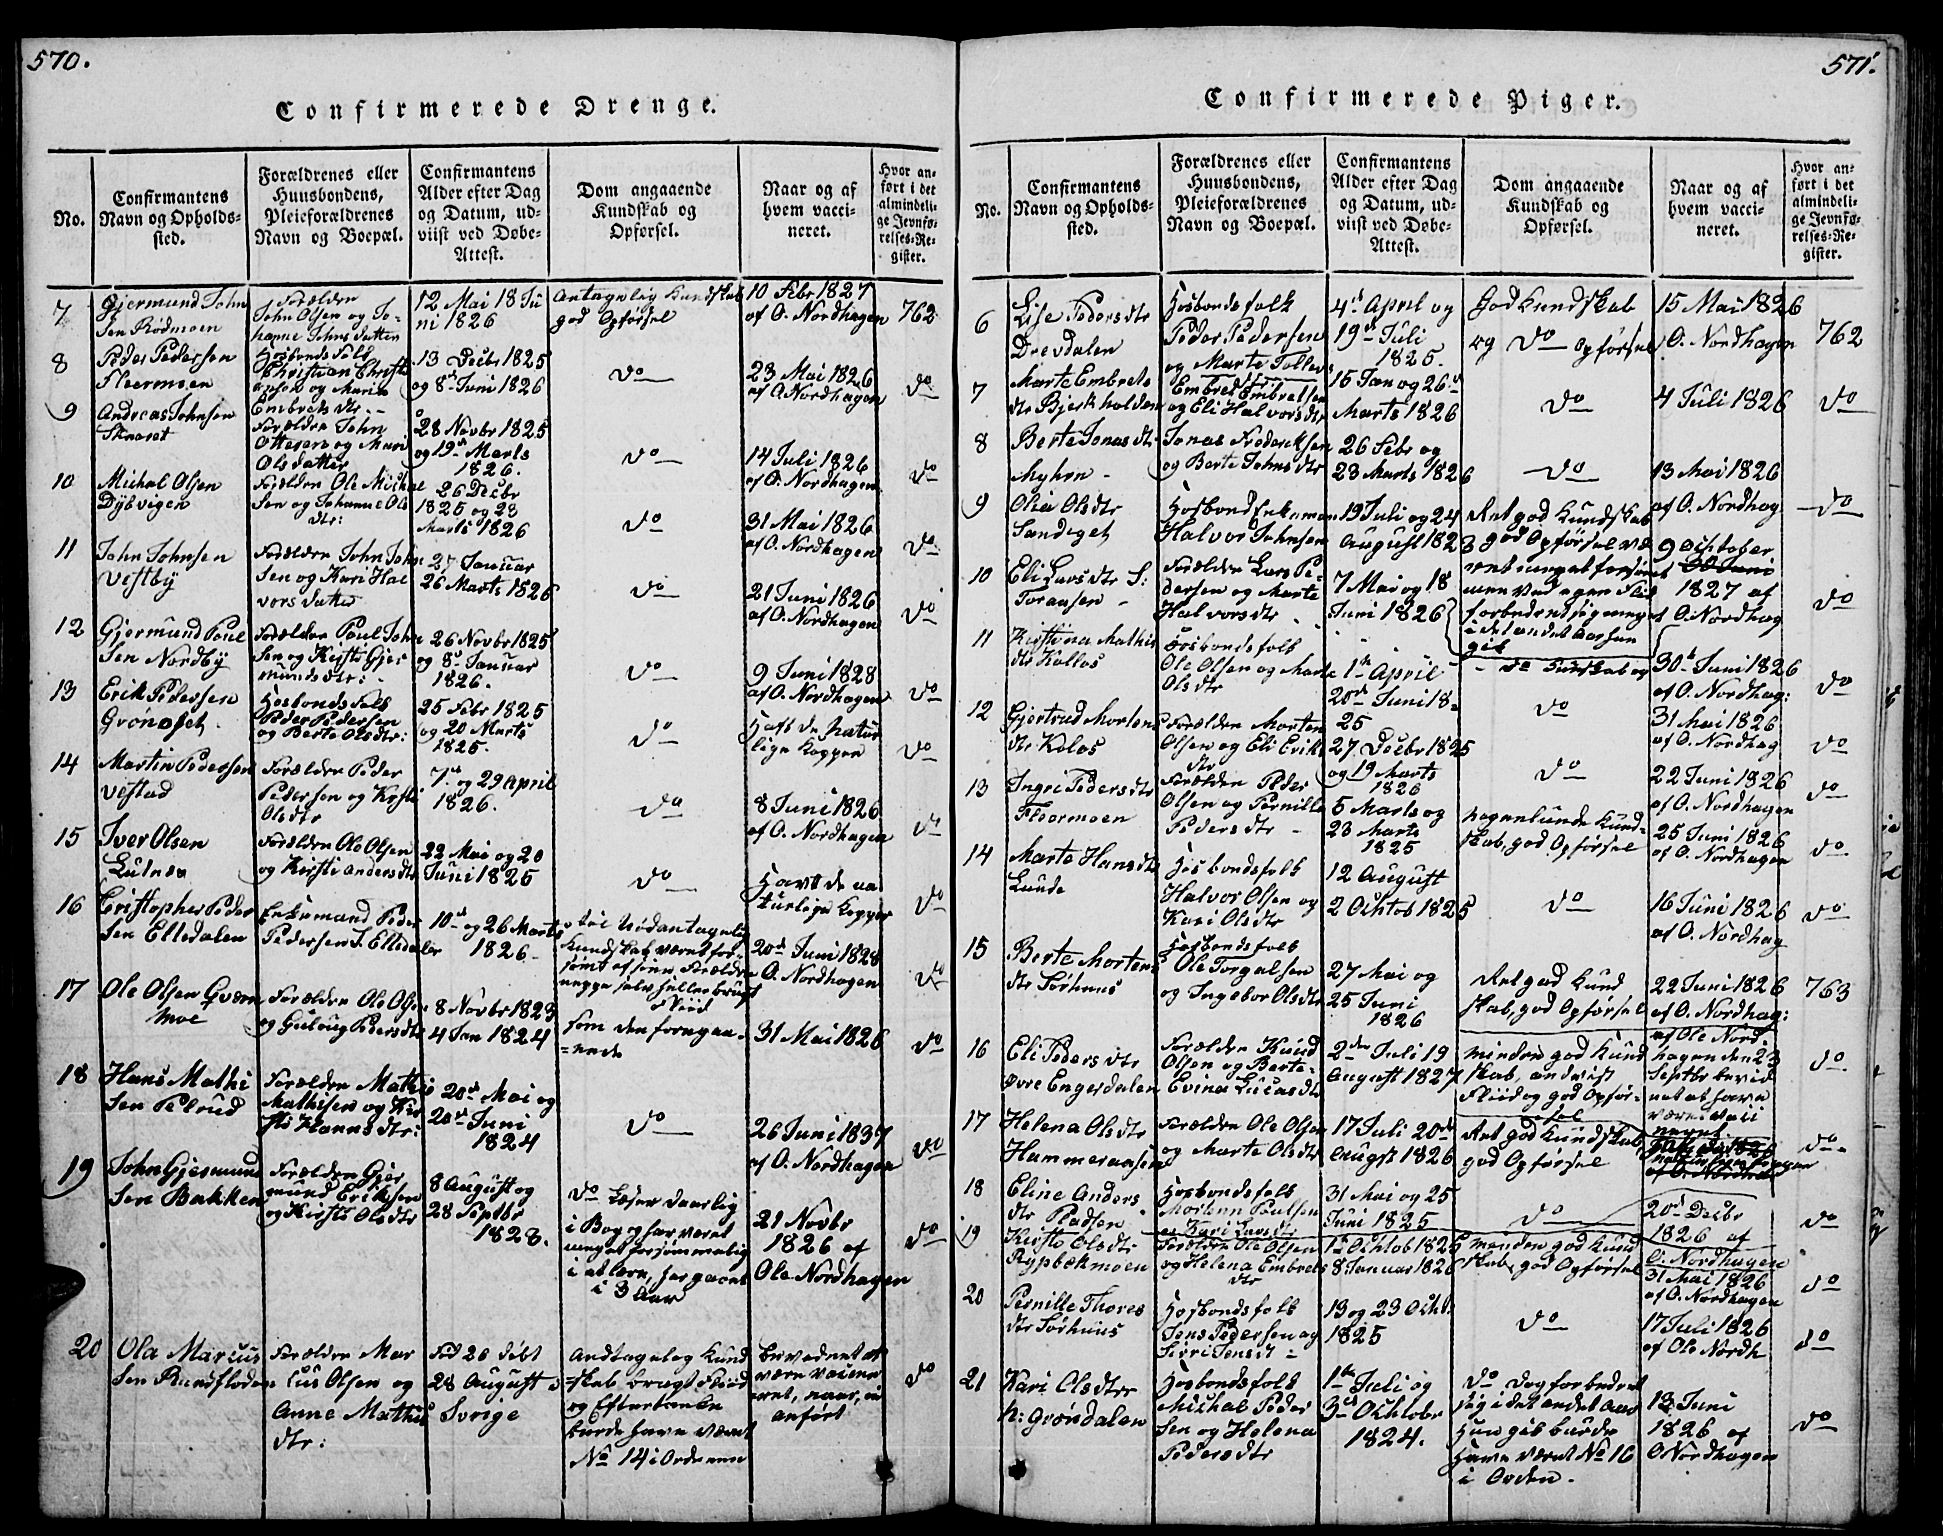 570.
Confirmerede Drenge.
No.
Confirmantens
Navn og Opholds-
sted.
Forældrenes eller
Huusbondens,
Pleieforældrenes
Navn og Boepæl.
Confirmantens
Alder efter Dag
og Datum, ud-
viist ved Døbe-
Attest.
Dom angaaende
Kundskab og
Opførsel.
Naar og af
hvem vacci-
neret.
Hvor an-
ført i det
almindeli-
ge Jevnfø-
relses-Re-
gister.
7
Gjermund John
Sen Rødmoen
Forældre
John Olsen og Jo-
hanne Johns datter
12 Mai 18 Ju
ni 1826
Antagelig Kundskab
god Opførsel
10 Febr 1827
af O. Nordhagen
762
8
Peder Pedersen
Fleermoen
Hosbonds Folk
Christian Christi
ensen og Maria
Embrets dtr.
13 Decbr 1825
og 8de Juni 1826
do
23 Mai 1826
af O Nordhagen
do
9
Andreas Johnsen
Skraset
Forældre John
Ottesen og Mari
Olsdatter
28 Novbr 1825
og 19de Marts
1826.
do
14 Juli 1826
af O. Nordhagen
do
10
Michal Olsen
Dybvigen
Forældre Ole Michal
Sen og Johanne Ols
dtr:
26 Decbr
1825 og 23
Marts 1826
do
31 Mai 1826
af O. Nordhagen
do
11
John Johnsen
Vestby
Forældre John John
Sen og Kari Hal
vors datter
27 Januar
26 Marts 1526
do
21 Juni 1826
af O. Nordhagen
do
12
Gjermund Poul
Sen Nordby
Forældre Poul John
Sen og Kirsti Gjer
munds dtr:
26 Novbr 1825
og 8de Januar
1826.
do
9 Juni 1828
af O. Nordhagen
do
13
Erik Pedersen
Grønoset
Hosbonds Folk
Peder Pedersen
og Berte Olsdtr:
25 Febr 1825
og 20 Marts
1825.
do
Haft de Natur
lige Kopper
do
14
Martin Pedersen
Vestad
Forældre Peder
Pedersen og Kirsti
Olsdtr
7de og 29 April
1826.
do
8 Juni 1826
af O. Nordhagen
do
15
Iver Olsen
Lutnes
Forældre Ole Olsen
og Kirsti Andersdtr
22 Mai og 20
Juni 1825
do
Havt de na
turlige Kopper
do
16
Cristopher Peder
Sen Elledalen
Enkemand Peder
Pedersen S. Elledalen
10de og 26 Marts
1826.
Nødantagelig
Kundskab været for-
sømt af sine Forældre
20de Juni 1828
O. Nordhagen
do
17
Ole Olsen Qværn
Moe
Forældre Ole Olsen
og Guloug Pedersdtr
8 Novbr 1823
4 Jan 1824
Som den foregaa-
=ende
31 Mai 1826
do
18
Hans Mathi
Sen Pelrud
Forældre Mathis
Mathisen og Kir
sti Hannsdtr:
20de Mai og
20de Juni
1824
do
26 Juni 1837
af O. Nordhagen
do
19
John Gjermund
Sen Bakken
Forældre Gjer
mund Eriksen
og Kirsti Olsdtr
8 August og
28 Septbr
1823.
do Læser daarlig
i Bog og har været
meget forsømmelig
i at lære, har gaaet
i 3 Aar
21 Novbr
1826 af
Ole Nordhagen
do
20
Ola Marcus
Sen Rundfloden
Forældre Mar
cus Olsen og
Anne Mathis
dtr:
Fød 20 døbt
28 August
Sverige
Andtagelig Kund
=skab brugt Fliid
og Eftertanke
burde have været
No 14 i Ordenen
bevidnet at
være vaccine
ret, naar, ei
anført
do
571.
Confirmerede Piger.
No.
Confirmantens
Navn og Opholds-
sted.
Forældrenes eller
Huusbondens,
Pleieforældrenes
Navn og Boepæl.
Confirmantens
Alder efter Dag
og Datum, ud-
viist ved Døbe-
Attest.
Dom angaaende
Kundskab og
Opførsel.
Naar og af
hvem vacci-
neret.
Hvor an-
ført i det
almindeli-
ge Jevnfø-
relses-Re-
gister.
6
Lise Pedersdtr
Drevdalen
Hosbondsfolk
Peder Pedersen
og Marte Tollevs
4de April og
19de Juli
1825.
God Kundskab
og do Opførsel
15 Mai 1826
O. Nordhagen
762
7
Marte Embrets
dtr Bjerkholden
Embret Embretsen
og Eli Halvorsdtr
15 Jan og 26de
Marts 1826
do
4 Juli 1826
do
8
Berte Jonas dtr
Myhren
Jonas Frederiksen
og Berte Johns dtr
26 Febr og
23 Marts 1826
do
13 Mai 1826
af O. Nordhag
do
9
Olia Olsdtr
Sandeget
Hosbond Enkeman
Halvor Johnsen
19 Juli og 24
August 182
Ret god Kundskab
god Opførsel væ
ret meget forsømt
men ved egen Flid
forbedret sig meget
i det andet Aar hun
gik
9 October
1827 af
O. Nordhag
10
Eli Lars dtr S:
Toraasen
Forældre Lars Pe-
dersen og Marte
Halvorsdtr
7 Mai og 18
Juni 1826
do
11
Kirstina Mathis
dtr Kollos
Hosbondsfolk
Ole Olsen og Marte
Olsdtr
1ste April
20de Juni 18-
25
do Kundskab og
30de Juni 1826
af O. Nordhag:
do
12
Gjertrud Mortens
dtr Kolos
Forældre Morten
Olsen og Eli Eriks
dtr
27 Decbr 1825
og 19 Marts
1826
do
31 Mai 1826
af O. Nordhag
do
13
Ingri Pedersdtr
Floermoen
Forældre Peder
Olsen og Pernille
Peders dtr
5 Marts og
23 Marts
1825
do
22 Juni 1826
af O. Nordhagen
do
14
Marte Hansdtr
Lunde
Hosbondsfolk
Halvor Olsen og
Kari Olsdtr
12 August
2 Ochtob 1825
nogenlunde Kund-
skab, god Opførsel
do
25 Juni 1826
af O. Nordhagen
do
16 Juni 1826
af O. Nordhag
do
15
Berte Mortens
dtr Sørhuus
Hosbondsfolk
Ole Torgalsen
og Ingebor Olsdtr
27 Mai og
25 Juni
1826
Ret god Kund
skab, god Opførsel
22 Juni 1826
af O. Nordhag:
763
16
Eli Peders dtr
Øvre Engerdalen
Forældre Knud
Olsen og Berte-
Evina Lucasdtr
2den Juli 19
August 1827
mindre god Kund
skab, andvist
Fliid og god Opfør-
sel
af Ole Nord-
hagen den 23
Septbr bevid
net at have
været vacci
neret
do
17
Helena Olsdtr
Hammeraasen
Forældre Ole Olsen
og Marte Olsdtr
17 Juli 20de
August 1826
Ret god Kundskab
god Opførsel
do
18
Eline Anders
dtr Pladsen
Hosbondsfolk
Mortenn Poulsen
og Kari Larsdtr
31 Mai og 25
Juni 1825
do
20de Decbr
1826 af
O. Nordhagen
do
19
Kirsti Olsdtr
Rypbekmoen
Forældre Ole Olsen
og Helena Embrets
dtr
1ste Ochtob 1825
8 Januar 1826
mendre god Kund
skab, god Opførsel
31 Mai 1826
af O. Nordhagen
do
20
Pernille Thores
dtr Sørhuus
Hosbondsfolk
Jens Pedersen og
Siri Jensdtr
19 og 23 Ocht.
1825
do
17 Juli 1826
af Ole Nordh
do
21
Kari Olsdtr
N: Grøndalen
Hosbondsfolk
Michal Peder
Sen og Helena
Pedersdtr
1ste Juli og
3de Ochtobr
1824.
do dog forbedret
sig i det andet Aar
Hun gik burde
Have været No 16
i Orden.
13 Juni
1826 af
O Nordhagen
do